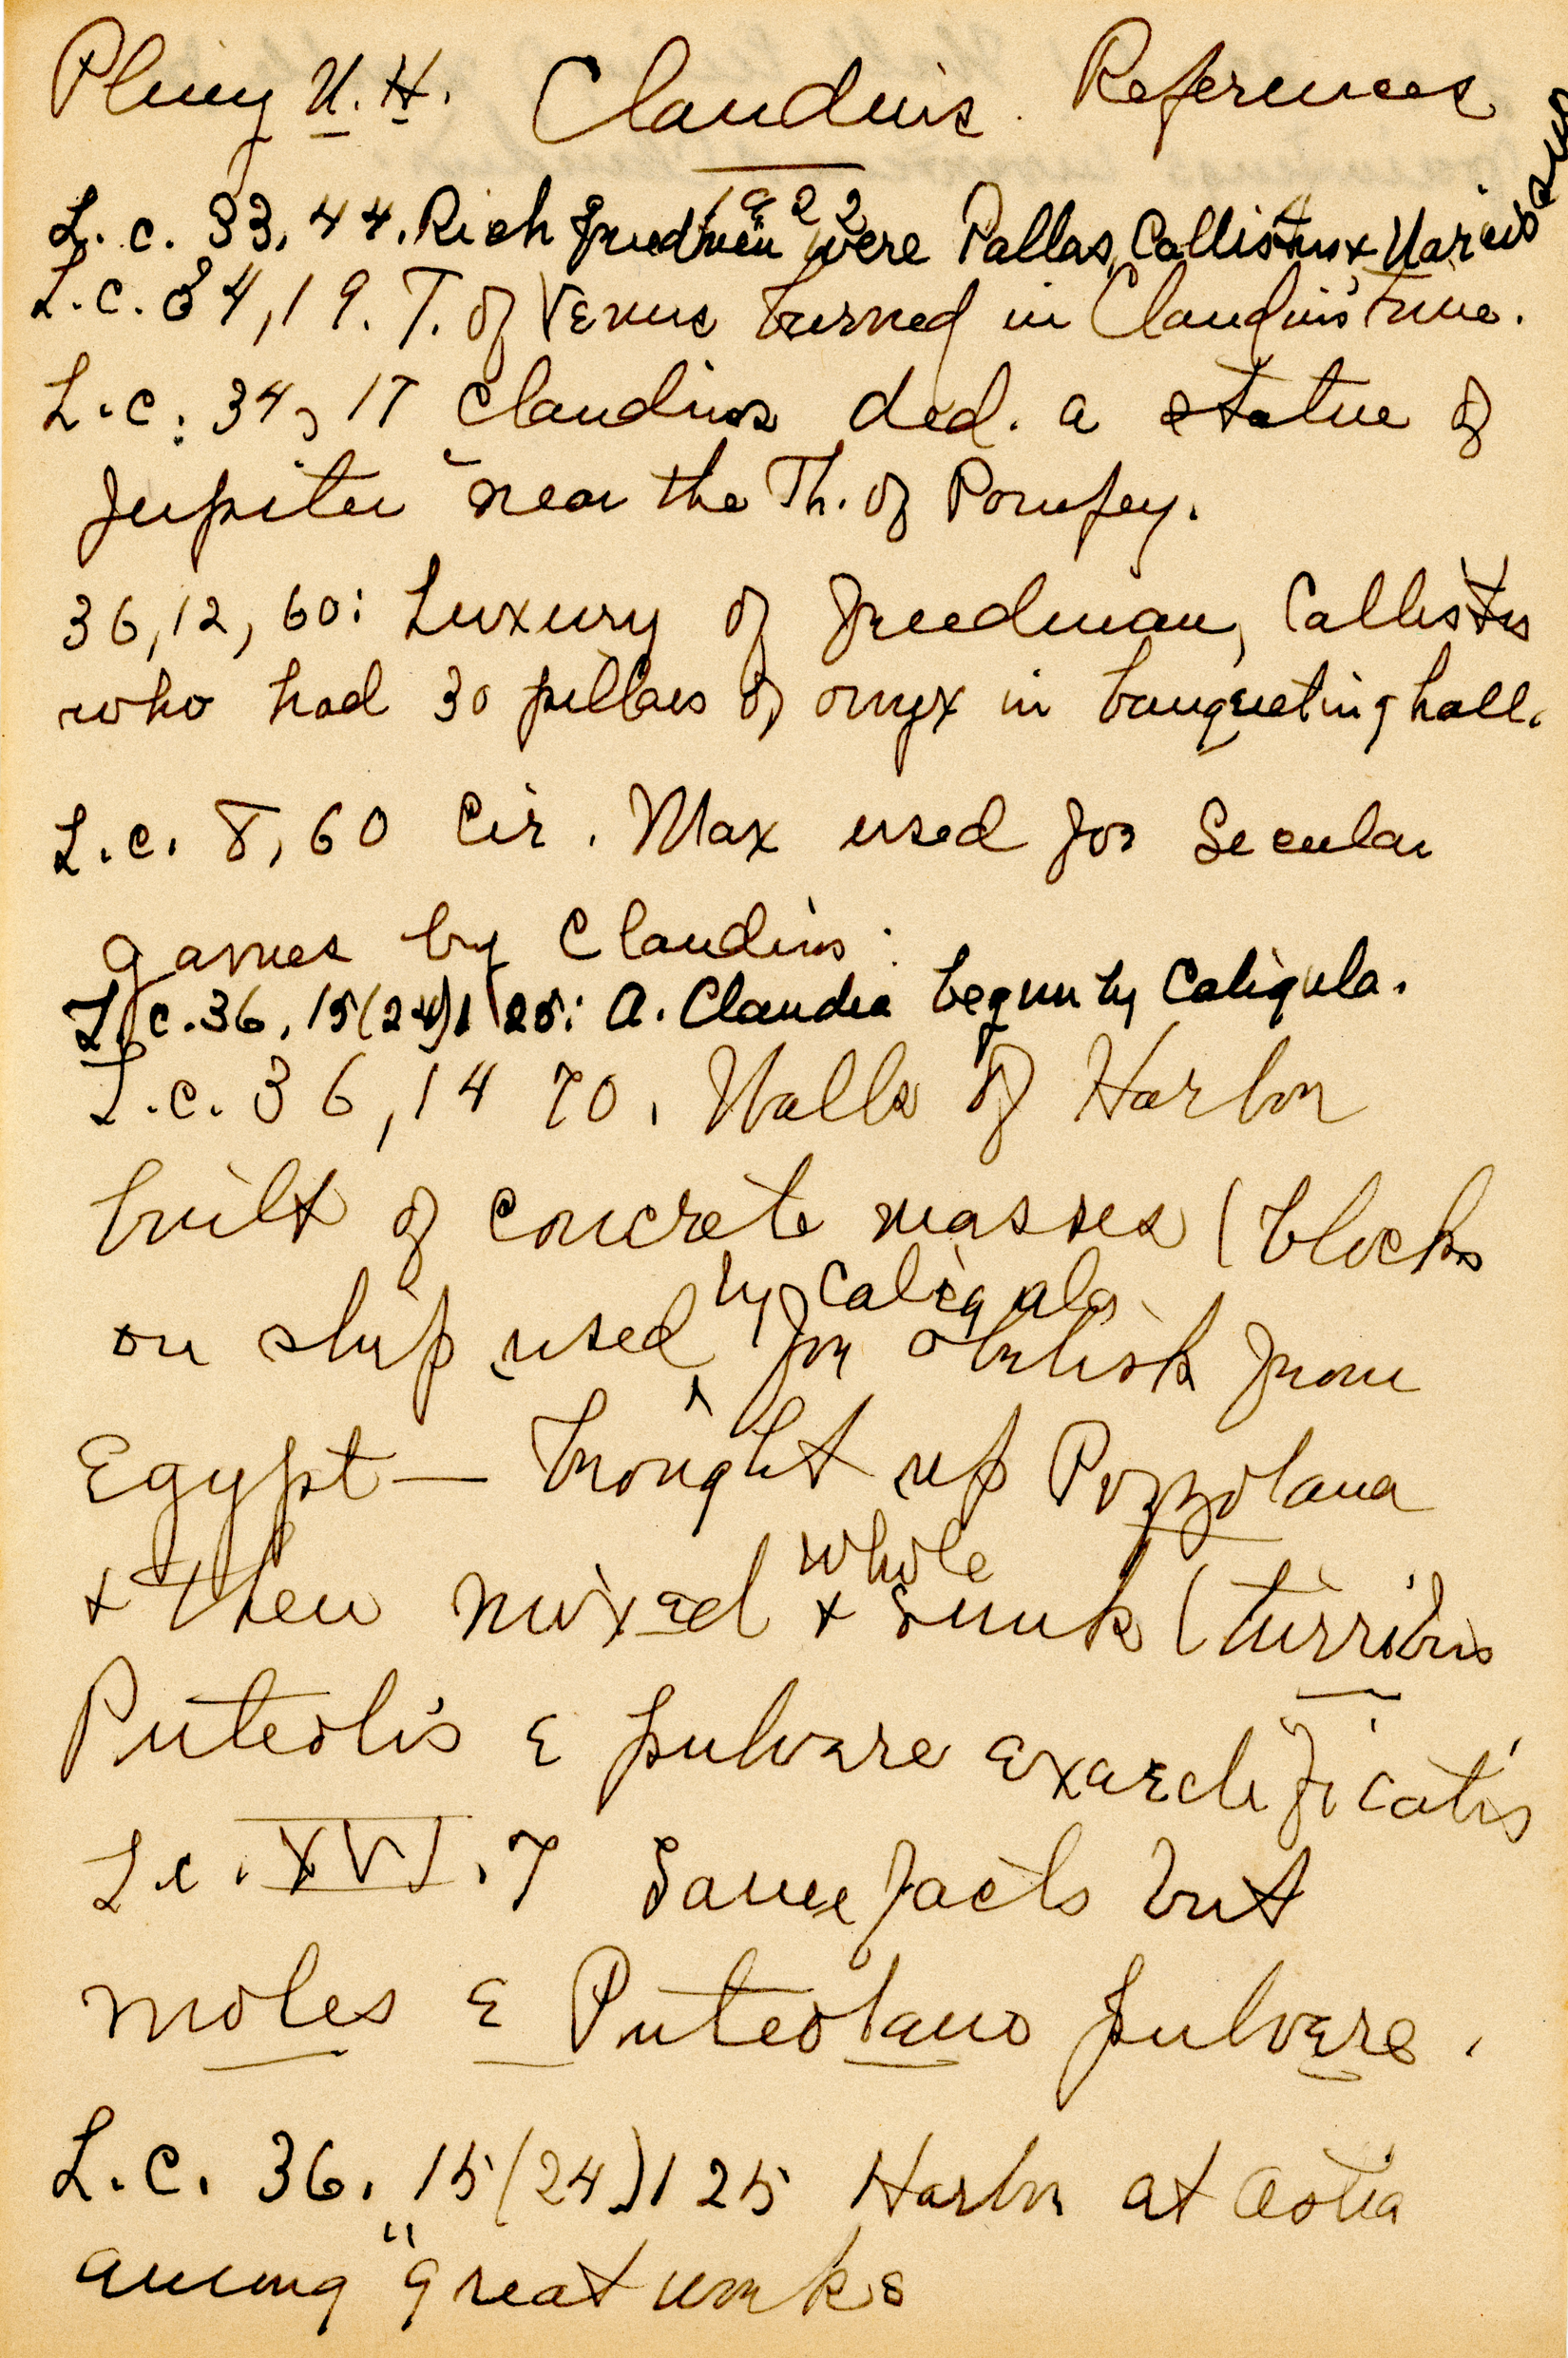 Pliny N.H. Claudius References
1922
L. c. 33, 44. Rich freedmen were Pallas, Callistus & Narcissus
L. c. 34, 19. T. of Venus burned in Claudius' time.
L. c. 34, 17 Claudius ded. a statue of
Jupiter near the Th. of Pompey.
36, 12, 60: Luxury of freedman, Callistus
who had 30 pillars of onyx in banqueting hall.
L. c. 8, 60 Cir. Max used for Secular
games by Claudius.
L. c. 36, 15(24)125: A. Claudia begun by Caligula.
L. c. 36, 14 70. Walls of Harbor
built of concrete masses (blocks
on ship used by Caligula for obelisk from
Egypt — brought up Pozzolana
& then mixed whole & sunk (turribus
Puteolis e pulvere exaedificatis
L. c. XVI. 7 Same facts but
moles e Puteolano pulvere.
L. c. 36. 15(24)125 Harbor at Ostia
among "great works